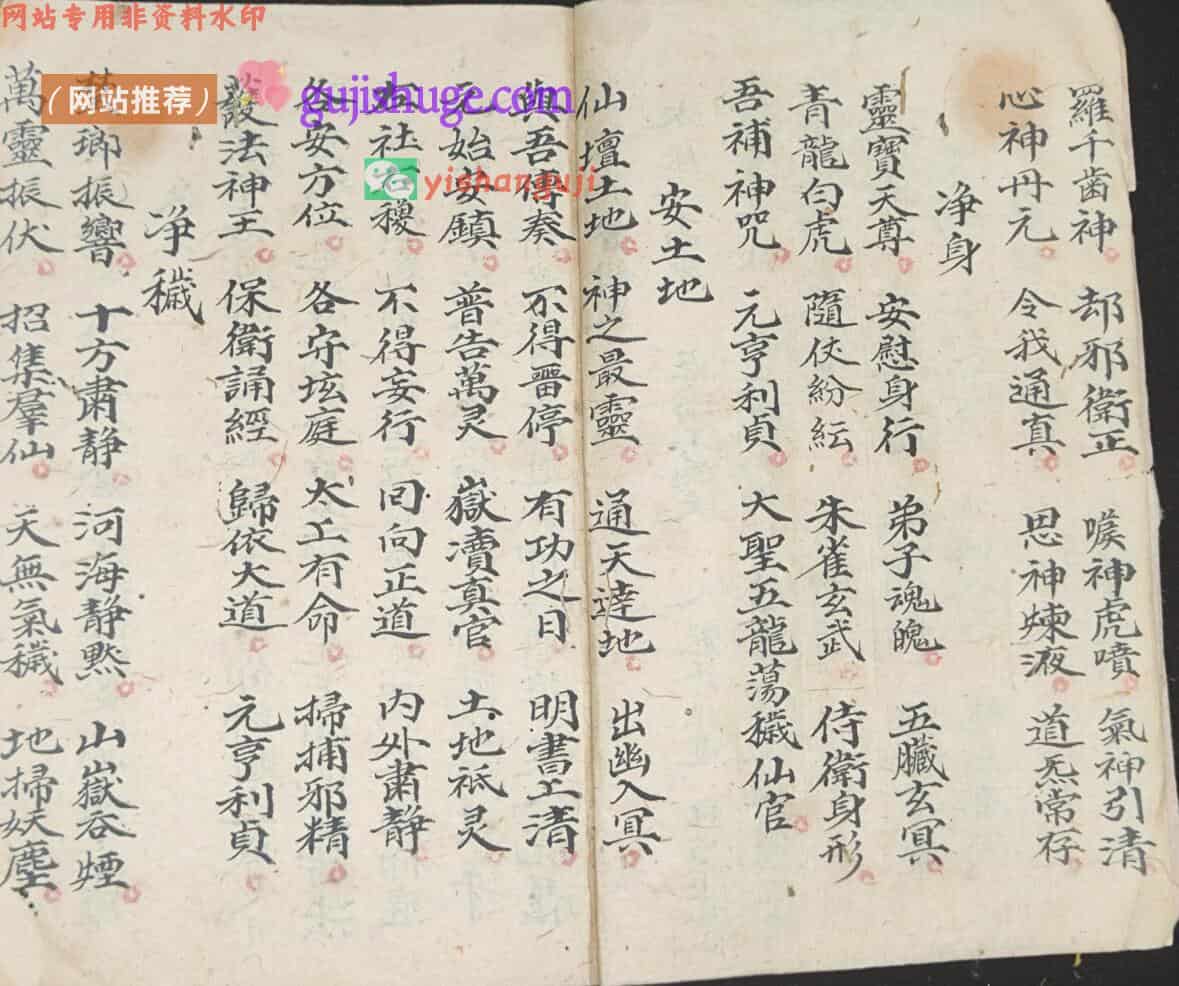 网站专用非资料水印
（网站推荐）
gujishuge.com
yishanguji
羅千齒神 却邪衛正 喉神虎噴 氣神引清
心神丹元 令我通真 思神煉液 道炁常存
净身
靈寶天尊 安慰身行 弟子魂魄 五臟玄冥
青龍白虎 隨仗紛紜 朱雀玄武 侍衛身形
吾補神咒 元亨利貞 大聖五龍蕩穢仙官
安土地
仙壇土地 神之最靈 通天達地 出幽入冥
與吾傳奏 不得畱停 有功之日 明書上清
元始安鎮 普告萬灵 嶽瀆真官 土地祗灵
社右稷 不得妄行 回向正道 内外肅静
各安方位 各守坛庭 太上有命 掃捕邪精
發法神王 保衛誦經 歸依大道 元亨利貞
净穢
琅振響 十方肅静 河海静黙 山嶽吞煙
萬靈振伏 招集羣仙 天無氣穢 地掃妖塵